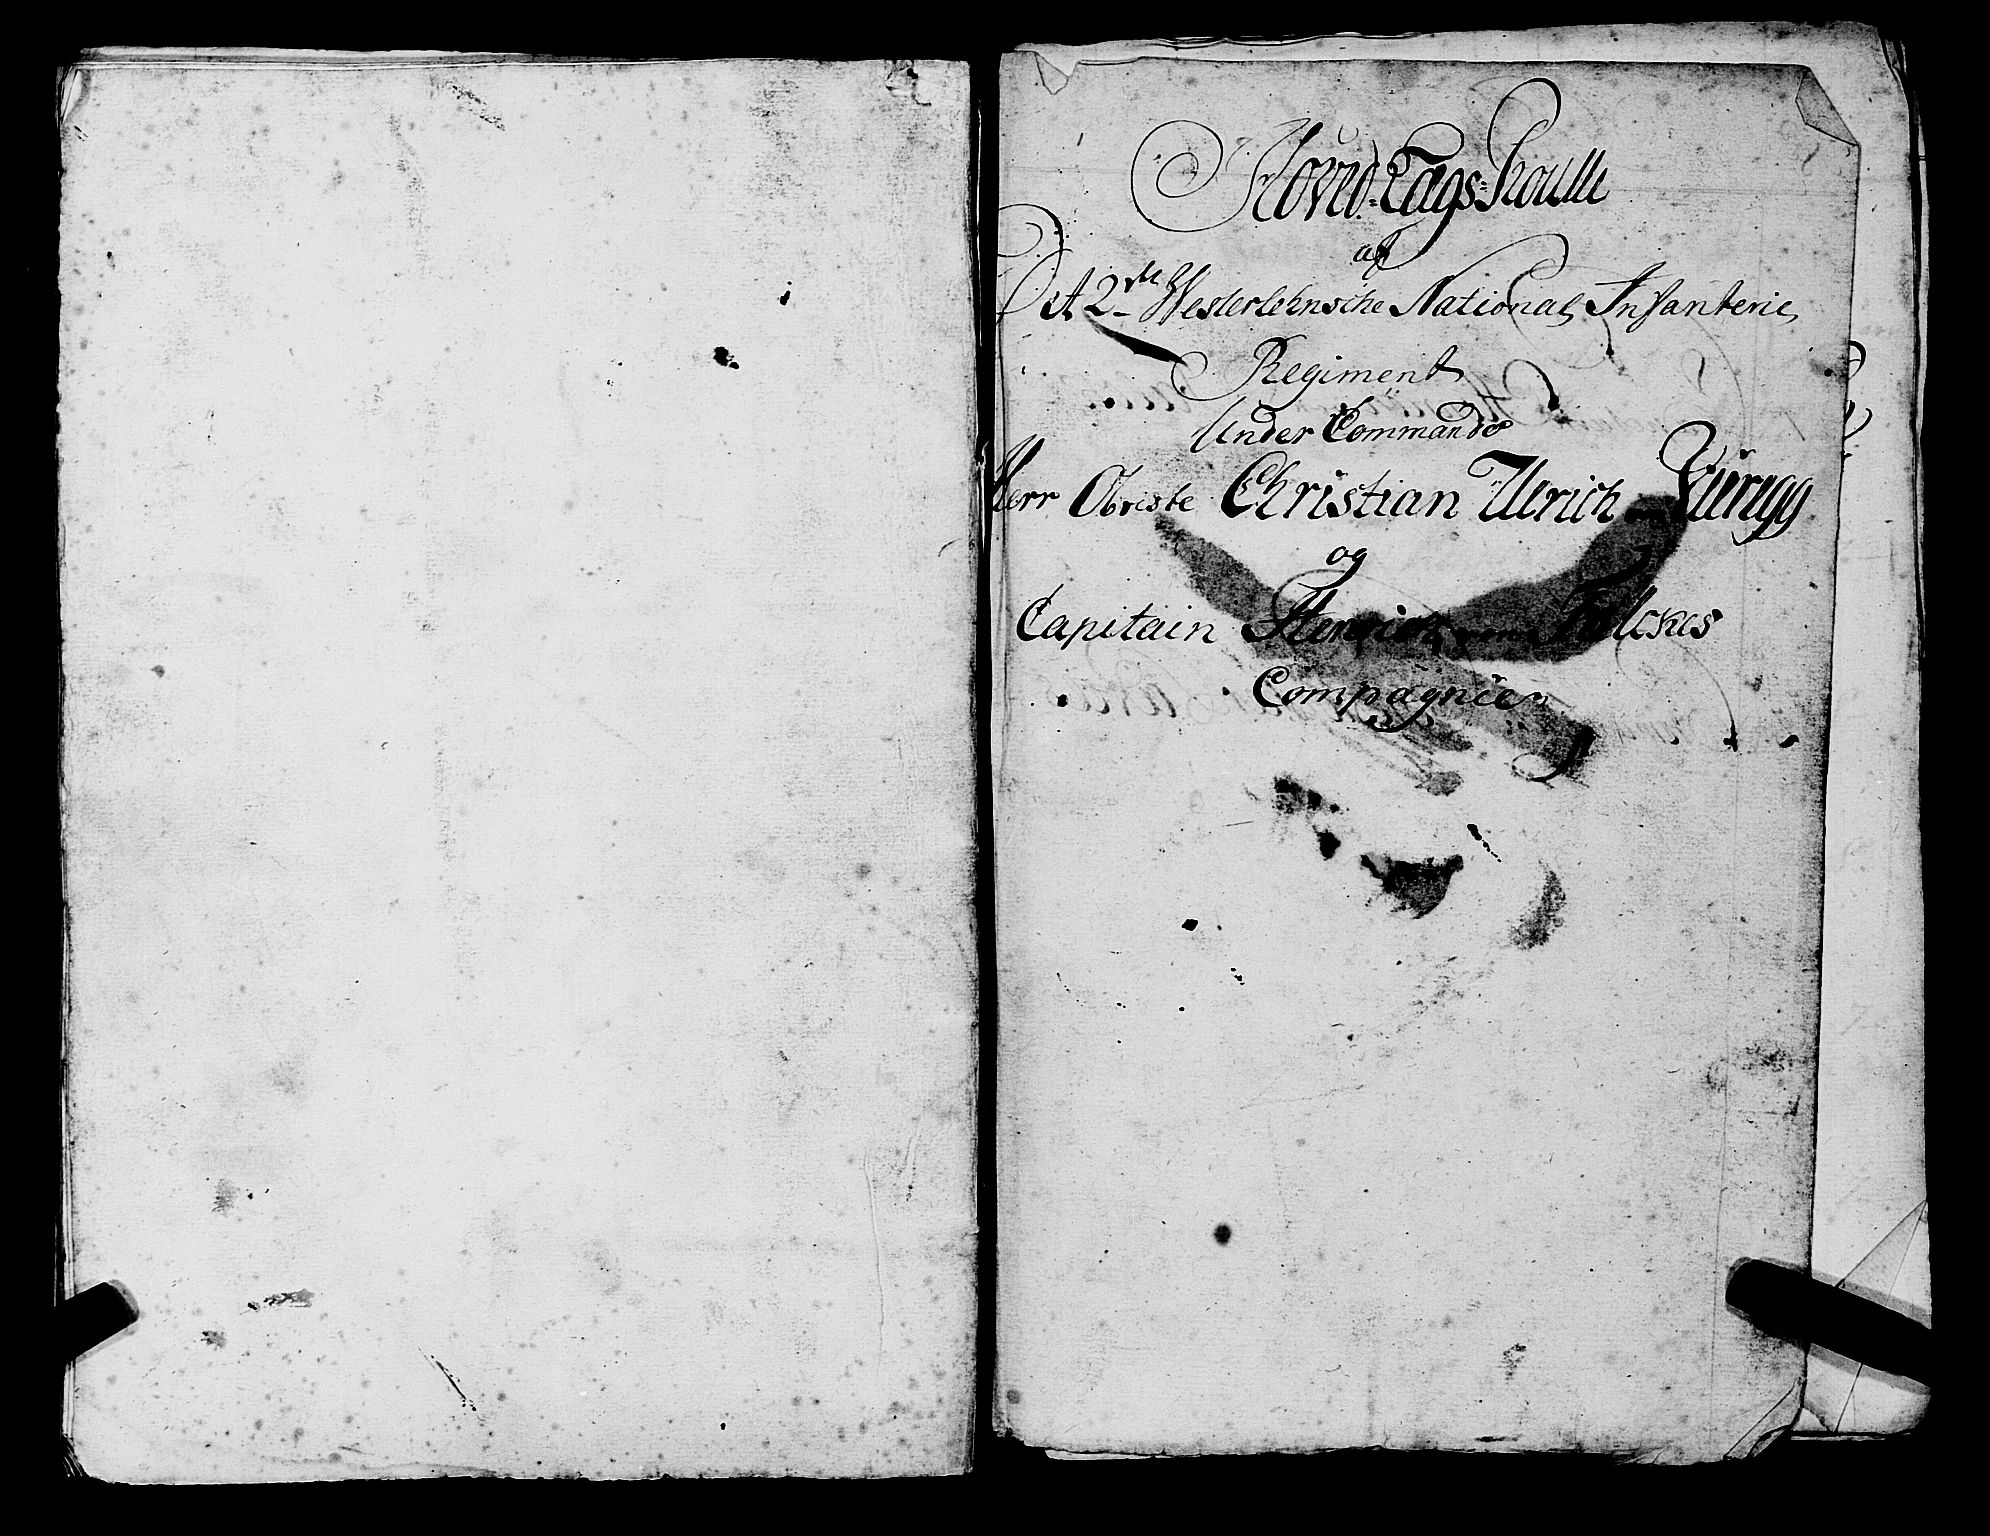 Hoved-Togs-Roulle
af
Det 2det Westerlehnsche National Infanterie
Regiment
Under Commando
Herr Obriste Christian Ulrich von
og
Capitain Henrich von Falckes
Compagnie